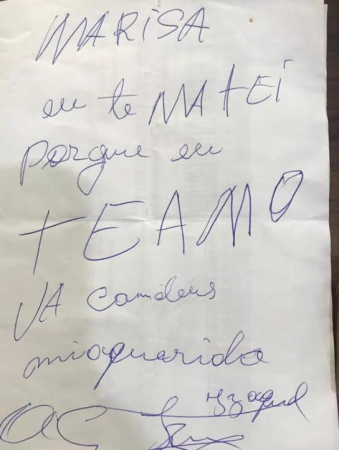 MARISA
eu te MATEI
porque eu
TE AMO
VA com deus
mioquerida